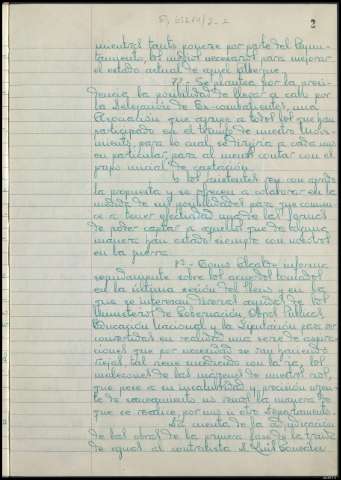 2
mientras tanto ponerse por parte del Ayun-
tamiento, los medios necesarios para mejorar
el estado actual de aquel Albergue.
7º.- Se plantea por la presi-
dencia, la posibilidad de llevar a cabo por
la Delegación de Ex-combatientes, una
Asociación que agrupe a todos los que han
participado en el triunfo de nuestro Movi-
miento, para lo cual, se dirigiría a cada uno
en particular para al menos contar con el
grupo inicial de captación.
A los asistentes les con
la propuesta y se ofrecen a colaborar en la
medida de sus posibilidades para que comien-
ce a tener efectividad una de las formas
de poder captar a aquellos que de alguna
manera han estado siempre con nosotros
en la guerra.
8º.- Como Alcalde informa
seguidamente sobre los acuerdos tomados
en la última sesión del Pleno y en la
que se interesan diversas ayudas de los
Ministerios de Gobernación, Obras Públicas,
Educación Nacional y la Diputación para ver
convertidas en realidad una serie de aspira-
ciones que por necesidad se van haciendo
viejas, tal viene sucediendo con la de los
malecones de las márgenes de nuestro río,
que pese a su necesidad y
de no la manera de
que se realice por uno u otro Departamento.
Da cuenta de la adjudicación
de las obras de la primera fase de la traída
de aguas al contratista D. Luis González